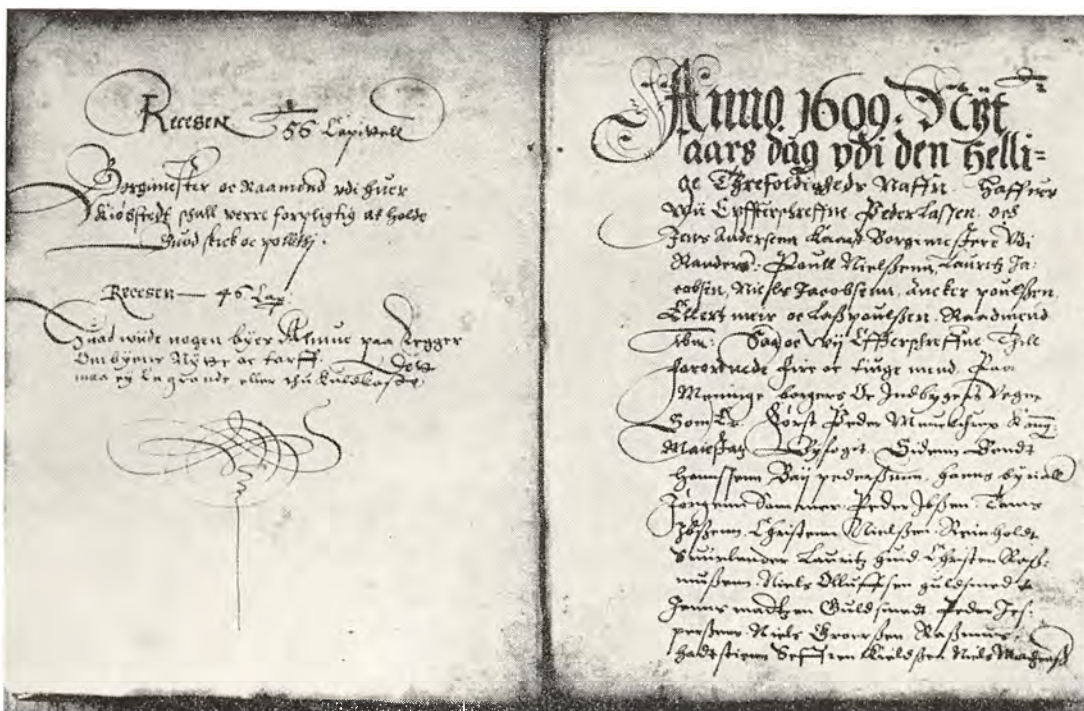 Recesen 56 Capitell
Borgmester oc Raamend vdi huer
Kiøbstedt schall verre forpligtig at holde
Guod skick oc politzj.
Recesen — 46 Cap:
nogen byer Almue paa Legger
Om byens Nytte oc tarff.
maa ey En grande eller thu kuldkaste
Anno. 1609. Nÿt
aars dag vdi den Helli=
ge Threfoldigheds Naffn. Haffuer
Wii Epfftterschreffne Peder Lassen. och
Jens Andersenn Kaas Borgemestere Vdi
Randers: Poull Nielßenn, Lauritz Ja:
cobsen, Niels Jacobsenn, Ancker poulßen,
Ellert meir oc Laß poulßen. Raadmend
Ibm: Saa oc Wij Effterschreffne Thill
forordnede fire oc tiuge mend. Paa
Meninge borgers Oc Indbygers Vegne
Som Er. Først Peder Munckhrop Kong:
Maiestatz Byfoget. Sidenn Bendt
Hanssenn Baÿ pederßenn. Hanns byriall
Jørgenn Sommer. Peder Ibßen. Tamis
Ibßenn. Christenn Nielßen. Reinholdt
Lauritz huid. Christen Raß:
mußenn. Niels Olluffsen guldsmed
Jenns madtzen Guldsmedt. Peder Jes:
perßenn Niels Broerßen Raßmus
Kieldßen Niels